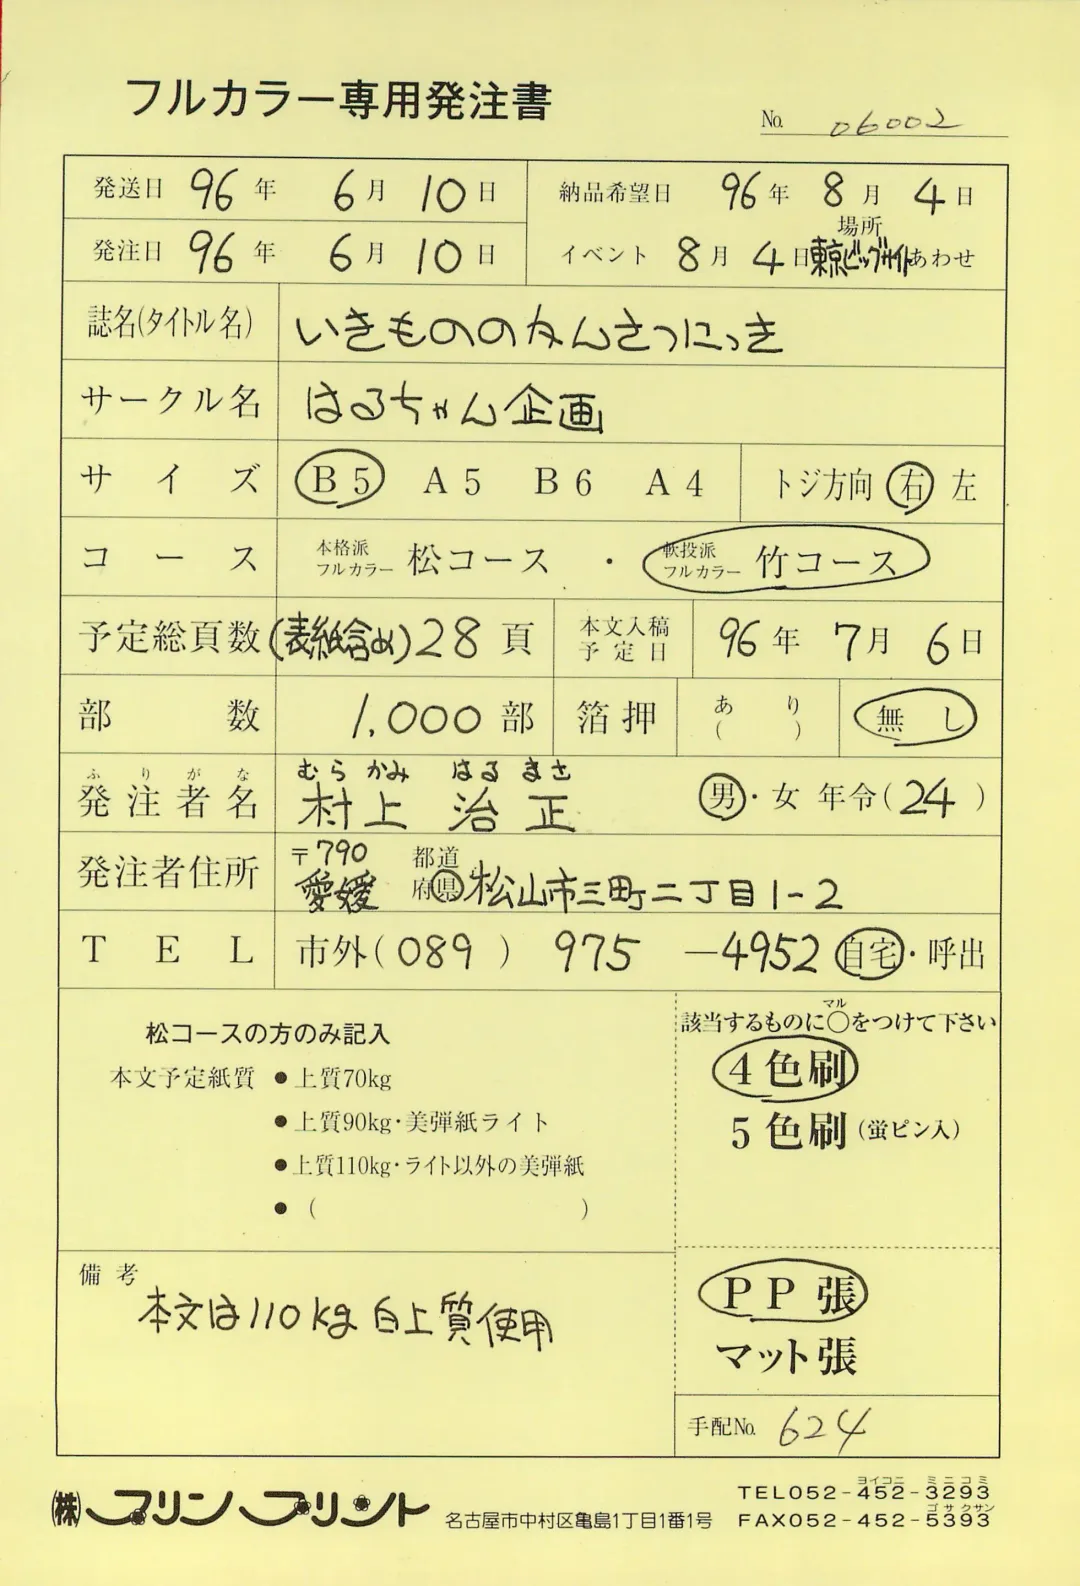 フルカラー専用発注書
No. 06002
発送日 96年 6月 10日
納品希望日 96年 8月 4日
発注日 96年 6月 10日
場所
イベント 8月 4日東京ビッグサイトあわせ
誌名(タイトル名) いきもののかんさつにっき
サークル名 はるちゃん企画
サイズ B5 A5 B6 A4 トジ方向 右 左
コース 本格派フルカラー 松コース ・ 軟投派フルカラー 竹コース
予定総頁数(表紙含め)28頁 本文入稿予定日 96年 7月 6日
部数 1,000部 箔押 あり( ) 無し
ふりがな むらかみ はるまさ
発注者名 村上 治正 男・女 年令(24)
発注者住所 〒790 愛媛 都道府県 松山市三町二丁目1-2
TEL 市外(089) 975-4952 自宅・呼出
松コースの方のみ記入
本文予定紙質 ●上質70kg
●上質90kg・美弾紙ライト
●上質110kg・ライト以外の美弾紙
●( )
マル
該当するものに○をつけて下さい
4色刷
5色刷(蛍ピン入)
備考
本文は110kg白上質使用
PP張
マット張
手配No. 624
㈱プリンプリント 名古屋市中村区亀島1丁目1番1号
ヨイコニ ミニコミ
TEL052-452-3293
ゴサクサン
FAX052-452-5393